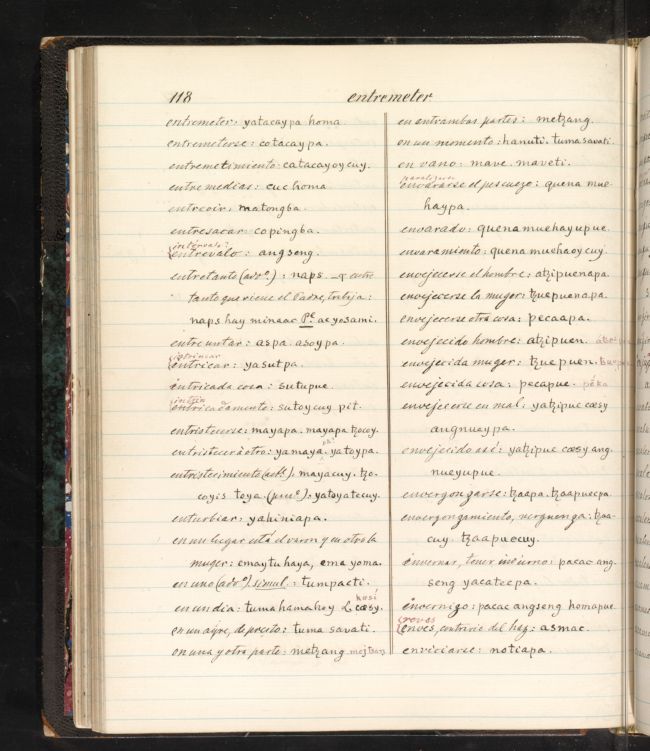 118 entremeter
entremeter: yatacaypa homa
entremeterse: cotacaypa.
entremetimiento: catacayoycuy.
entremedias: cuc homa
entreoir: matongba.
entresacar: copingba.
intérvalo?
entrevalo: angseng.
entretanto (advo.): naps
tanto que viene el Padre, trabaja:
naps hay minaac Pe. aeyosami.
entreuntar: aspa. asoypa.
intrincar
entricar: yasutpa.
intricada cosa: sutupue.
entricadamente: sutoycuy pit.
entristecerse: mayapa. mayapa tzocoy.
entristecer á otro: yamaya. yatoypa.
entristecimiento: mayacuy. tzo-
coyis toya. yatoyatecuy.
enturbiar: yahiniapa.
en un lugar está el varon y en otro la
muger: emaytuhaya, ema yoma.
en uno (advo.) simul: tumpaeti.
kosi
en un dia: tumahamahoy & cœsy.
en un ayre, de presto: tuma savati.
en una y otra parte: metzang
en entrambas partes: metzang.
en un momento: hanuti. tuma savati.
en vano: mave. maveti.
envararse el pescuezo: quena mue-
haypa.
envarado: quenamuehayupue.
envaramiento: quena muehaoycuy.
envejecerse el hombre: atzipuenapa.
envejecerse la muger: tzuepuenapa.
envejecerse otra cosa: pecaapa.
envejecido hombre: atzipuen.
envejecida muger: tzuepuen.
envejecida cosa: pecapue. péka
envejecerse en mal: yatzipue cœsy
angnueypa.
envejecido así: yatzipue cœsy ang.
nueyupue.
envergonzarse: tzaapa. tzaapuecpa.
envergonzamiento, verguenza: tzaa-
cuy. tzaapuecuy.
invernar, tener invierno: pacac ang-
seng yacatecpa.
invernizo: pacac angseng homapue.
reves
enves, contrario del haz: asmac.
enviciarse: notiapa.